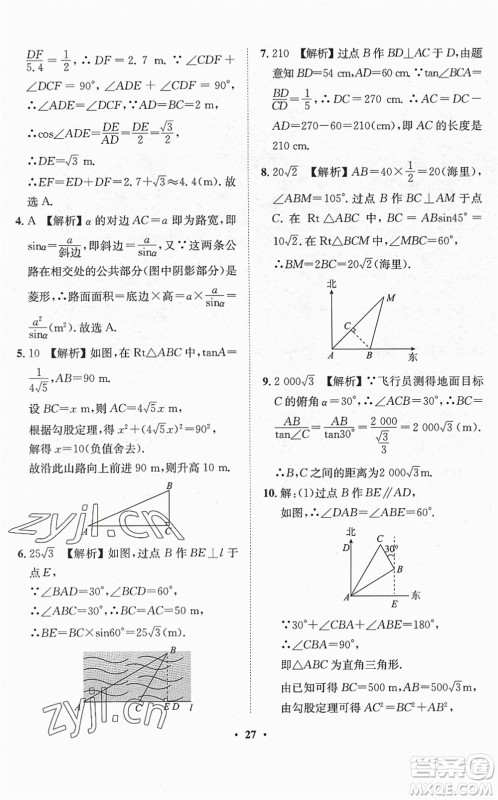 DF/5.4=1/2, ∴DF=2.7 m. ∵∠CDF+
∠DCF=90°, ∠ADE+∠CDF=90°,
∴∠ADE=∠DCF=30°,
∴cos∠ADE=DE/AD=DE/2=√3/2,
∴DE=√3 m.
∴EF=ED+DF=2.7+√3≈4.4(m).
故选 C.
4. A 【解析】α的对边AC=a即为路宽,即
sinα=a/斜边,∴斜边=a/sinα.又∵这两条公
路在相交处的公共部分(图中阴影部分)是
菱形,∴路面面积=底边×高=a×a/sinα
=a²/sinα(m²).故选 A.
5. 10 【解析】如图,在Rt△ABC中,tanA=
1/4√5,AB=90 m.
设BC=x m,则AC=4√5x m,
根据勾股定理,得x²+(4√5x)²=90²,
解得x=10(负值舍去).
故沿此山路向上前进90 m,则升高10 m.
B
A
C
6. 25√3 【解析】如图,过点B作BE⊥l于
点E,
∵∠BAD=30°,∠BCD=60°,
∴∠ABC=30°,∴AC=BC=50 m,
∴BE=BC×sin60°=25√3(m).
B
A
C
E D l
7. 210 【解析】过点B作BD⊥AC于D,由题
意知BD=54 cm,AD=60 cm.∵tan∠BCA=
BD/CD=1/5,∴DC=270 cm.∴AC=DC-
AD=270-60=210(cm).即AC的长度是
210 cm.
8. 20√2 【解析】AB=40×1/2=20(海里),
∠ABM=105°.过点B作BC⊥AM于点
C.在Rt△ABC中,BC=ABsin45°=
10√2.在Rt△BCM中,∠MBC=60°,则
BM=2BC=20√2(海里).
北
M
C
A
B
东
9. 2 000√3 【解析】∵飞行员测得地面目标
C的俯角为30°,∴∠C=30°,∴BC=
AB/tan∠C=AB/tan30°=2 000/(√3/3)=2 000√3(m).
∴B、C之间的距离为2 000√3 m.
10. 解:(1)过点B作BE∥AD,
如图,∴∠DAB=∠ABE=60°.
北
D
C
30°
B
A
E
东
∵30°+∠CBA+∠ABE=180°,
∴∠CBA=90°,
即△ABC为直角三角形.
由已知可得BC=500 m,AB=500√3 m,
由勾股定理可得AC²=BC²+AB²,
· 27 ·
zyjl.cn
zyjl.cn